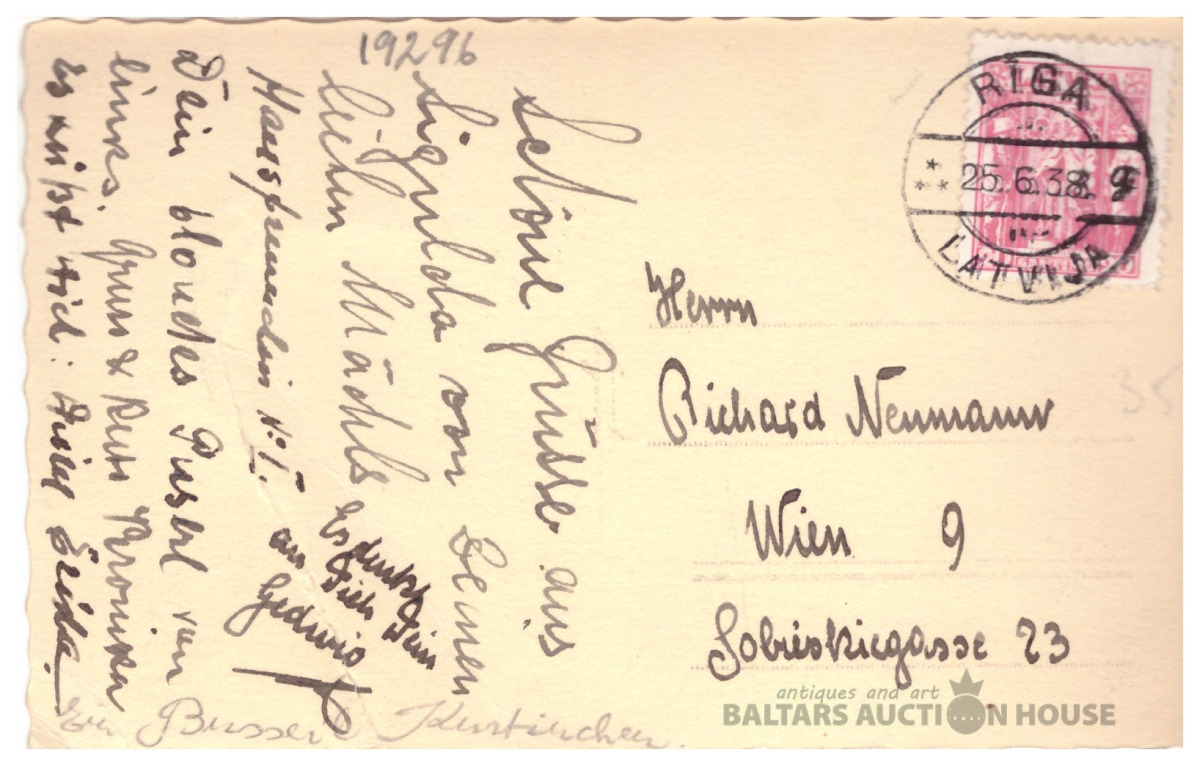 19296
Schöne Grüsse aus
Sigulda von Deinen
lieben Mädels
Hausfreundin N: I.
Dein blondes Puserl von
links. Gruss & Kuss
es küßt Dich:
Es denkt
an Dich Dein
Ein Busserl
RĪGA
25.6.38. 9
LATVIJA
Herrn
Richard Neumann
Wien 9
Sobieskiegasse 23
35
antiques and art
BALTARS AUCTION HOUSE